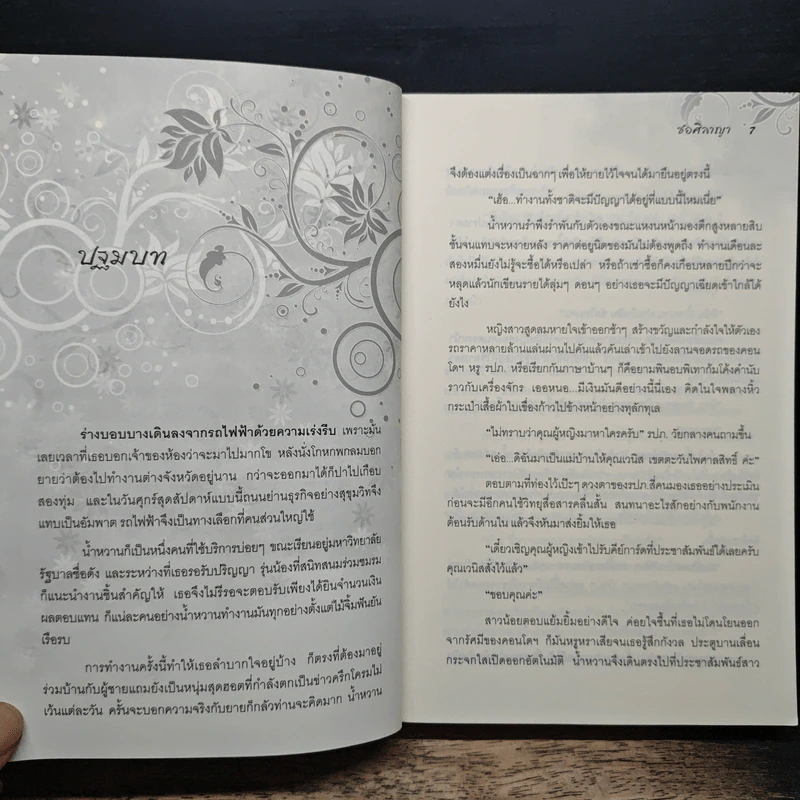 ปฐมบท
ร่างบอบบางเดินลงจากรถไฟฟ้าด้วยความเร่งรีบ เพราะมัน
เลยเวลาที่เธอบอกเจ้าของห้องว่าจะมาไปมากโข หลังนั่งโกหกพกลมบอก
ยายว่าต้องไปทำงานต่างจังหวัดอยู่นาน กว่าจะออกมาได้ก็ปาไปเกือบ
สองทุ่ม และในวันศุกร์สุดสัปดาห์แบบนี้ถนนย่านธุรกิจอย่างสุขุมวิทจึง
แทบเป็นอัมพาต รถไฟฟ้าจึงเป็นทางเลือกที่คนส่วนใหญ่ใช้
น้ำหวานก็เป็นหนึ่งคนที่ใช้บริการบ่อยๆ ขณะเรียนอยู่มหาวิทยาลัย
รัฐบาลชื่อดัง และระหว่างที่เธอรอรับปริญญา รุ่นน้องที่สนิทสนมร่วมชมรม
ก็แนะนำงานชิ้นสำคัญให้ เธอจึงไม่รีรอจะตอบรับเพียงได้ยินจำนวนเงิน
ผลตอบแทน ก็แน่ละคนอย่างน้ำหวานทำงานมันทุกอย่างตั้งแต่ไม้จิ้มฟันยัน
เรือรบ
การทำงานครั้งนี้ทำให้เธอลำบากใจอยู่บ้าง ก็ตรงที่ต้องมาอยู่
ร่วมบ้านกับผู้ชายแถมยังเป็นหนุ่มสุดฮอตที่กำลังตกเป็นข่าวครึกโครมไม่
เว้นแต่ละวัน ครั้นจะบอกความจริงกับยายก็กลัวท่านจะคิดมาก น้ำหวาน
ช่อศิลาญา 7
จึงต้องแต่งเรื่องเป็นฉากๆ เพื่อให้ยายไว้ใจจนได้มายืนอยู่ตรงนี้
“เฮ้อ...ทำงานทั้งชาติจะมีปัญญาได้อยู่ที่แบบนี้ไหมเนี่ย”
น้ำหวานรำพึงรำพันกับตัวเองขณะแหงนหน้ามองตึกสูงหลายสิบ
ชั้นจนแทบจะหงายหลัง ราคาต่อยูนิตของมันไม่ต้องพูดถึง ทำงานเดือนละ
สองหมื่นยังไม่รู้จะซื้อได้หรือเปล่า หรือถ้าเช่าซื้อก็คงเกือบหลายปีกว่าจะ
หลุดแล้วนักเขียนรายได้ลุ่มๆ ดอนๆ อย่างเธอจะมีปัญญาเฉียดเข้าใกล้ได้
ยังไง
หญิงสาวสูดลมหายใจเข้าออกช้าๆ สร้างขวัญและกำลังใจให้ตัวเอง
รถราคาหลายล้านแล่นผ่านไปคันแล้วคันเล่าเข้าไปยังลานจอดรถของคอน
โดฯ หรู รปภ. หรือเรียกกันภาษาบ้านๆ ก็คือยามพินอบพิเทาก้มโค้งคำนับ
ราวกับเครื่องจักร เออหนอ...มีเงินมันดีอย่างนี้นี่เอง คิดในใจพลางหิ้ว
กระเป๋าเสื้อผ้าใบเขื่องก้าวไปข้างหน้าอย่างทุลักทุเล
“ไม่ทราบว่าคุณผู้หญิงมาหาใครครับ” รปภ. วัยกลางคนถามขึ้น
“เอ่อ...ดิฉันมาเป็นแม่บ้านให้คุณเวนิส เขตตะวันไพศาลสิทธิ์ ค่ะ”
ตอบตามที่ท่องไว้เป๊ะๆ ดวงตาของรปภ.สี่คนมองเธออย่างประเมิน
ก่อนจะมีอีกคนใช้วิทยุสื่อสารคลื่นสั้น สนทนาอะไรสักอย่างกับพนักงาน
ต้อนรับด้านใน แล้วจึงหันมาส่งยิ้มให้เธอ
“เดี๋ยวเชิญคุณผู้หญิงเข้าไปรับคีย์การ์ดที่ประชาสัมพันธ์ได้เลยครับ
คุณเวนิสสั่งไว้แล้ว”
“ขอบคุณค่ะ”
สาวน้อยตอบแย้มยิ้มอย่างดีใจ ค่อยใจชื้นที่เธอไม่โดนโยนออก
จากรัศมีของคอนโดฯ ก็มันหรูหราเสียจนเธอรู้สึกกังวล ประตูบานเลื่อน
กระจกใสเปิดออกอัตโนมัติ น้ำหวานจึงเดินตรงไปที่ประชาสัมพันธ์สาว